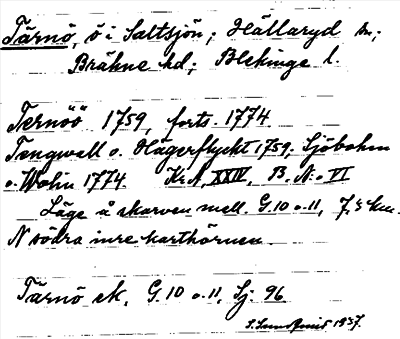 Tärnö, ö i Saltsjön; Hällaryd sn;
Bräkne hd; Blekinge l.
Ternöö 1759, forts. 1774
Tengwall o. Hägerflycht 1759; Sjöbohm
o. Wohn 1774 KrA, XXIV, B. N:o VI
Läge å skarven mell. G. 10 o. 11, 7,5 km.
N södra inre karthörnen.
Tärnö ek, G. 10 o. 11, Sj. 96
1937.